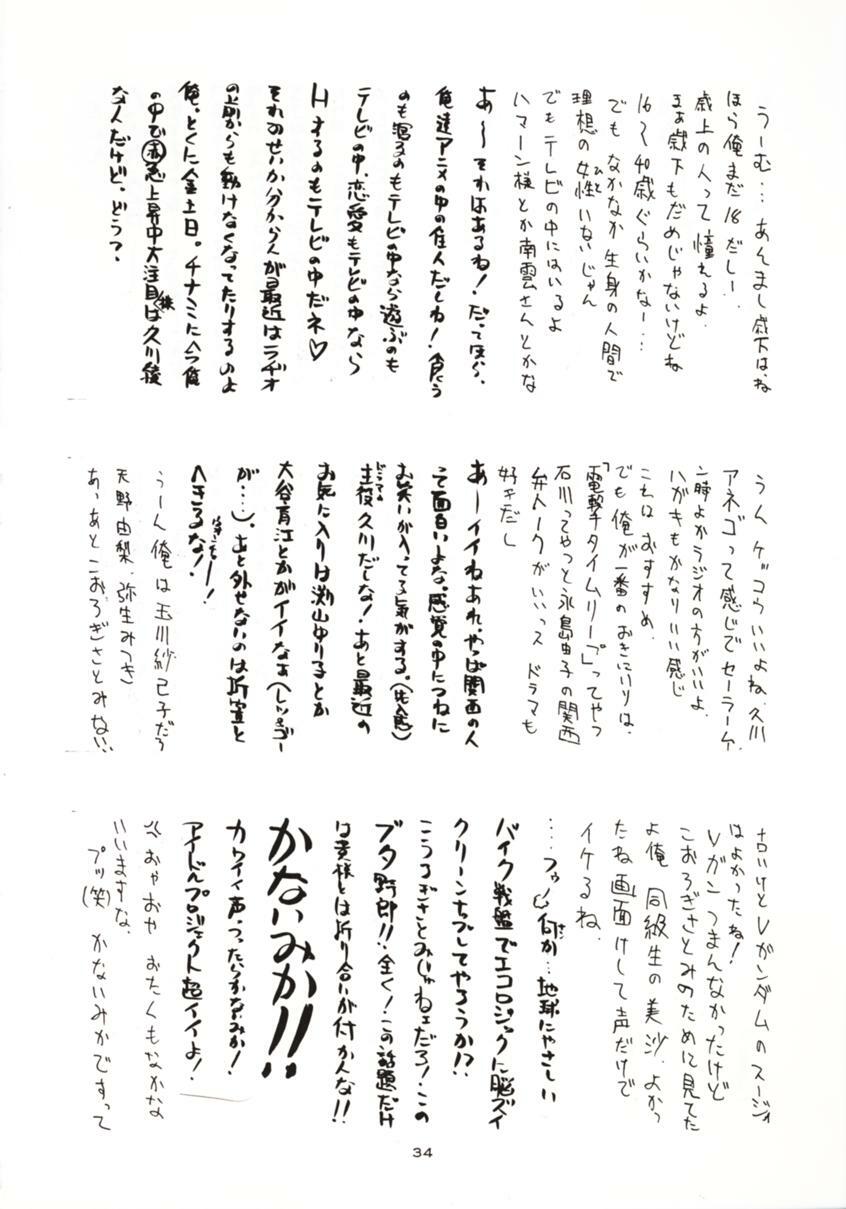 うーむ…あんまし歳下は、ね
ほら俺まだ18だしー、
歳上の人って憧れるよ、
まぁ歳下もだめじゃないけどね
16〜40歳ぐらいかなー…
でもなかなか生身の人間で
理想の女性(ひと)いないじゃん
でもテレビの中にはいるよ
ハマーン様とか南雲さんとかな
あ〜それはあるね!だってほら、
俺達アニメの中の住人だしね!食う
のも寝るのもテレビの中なら遊ぶのも
テレビの中、恋愛もテレビの中なら
HするのもテレビのФだネ♡
それのせいか分からんが最近はラヂオ
の前からも動けなくなってたりするのよ
俺。とくに金土日。チナミに今俺
の中で赤丸急上昇中大注目株は久川綾
な人だけど。どう?
うん、ケッコウいいよね、久川
アネゴって感じでセーラーケ、
ン時よかラジオの方がいいよ、
ハガキもかなりいい感じ
これはおすすめ、
でも俺が一番のおきにいりは、
「電撃チタイムリープ」ってやつ
石川ってやつと永島由子の関西
弁トークがいいっス ドラマも
好きだし
あーイイねあれ、やっぱ関西の人
って面白いよな。感覚の中につねに
お笑いが入ってる気がする。(先入感)
主役久川だしな!あと最近の
お気に入りは渕山ゆりるとか
大谷育江とかがイイなぁ(しッ♂ゴー
が…)。あと外せないのは折笠と
へきるな!ー!
うーん俺は玉川紗己子だろ
天野由梨、弥生みつき
あ、あとこおろぎさとみない、
古いけどVガンダムのスージィ
はよかったね!
Vガンつまんなかったけど
こおろぎさとみのために見てた
よ俺 同級生の美沙、よかっ
たね画面けして声だけで
イケるね、
…フゥ 何が…地球にやさしい
バイク戦艦でエコロジックに脳ズイ
クリーンナップしてやろうか!?
こうろぎさとみじゃねェだろ!この
ブタ野郎!!全く!この話題だけ
は貴様とは折り合いが付かんな!!
かないみか!!
カワイイ声っつったらかないみか!
アイドルプロジェクト超イイよ!
おやおや おたくもなかなか
いいますな、
プッ(笑) かないみかですって
34